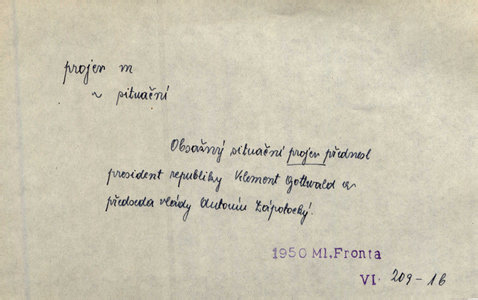 projev m
~ situační
Obsažný situační projev přednesl
president republiky Klement Gottwald a
předseda vlády Antonín Zápotocký.
1950 Ml.Fronta
VI. 209-16